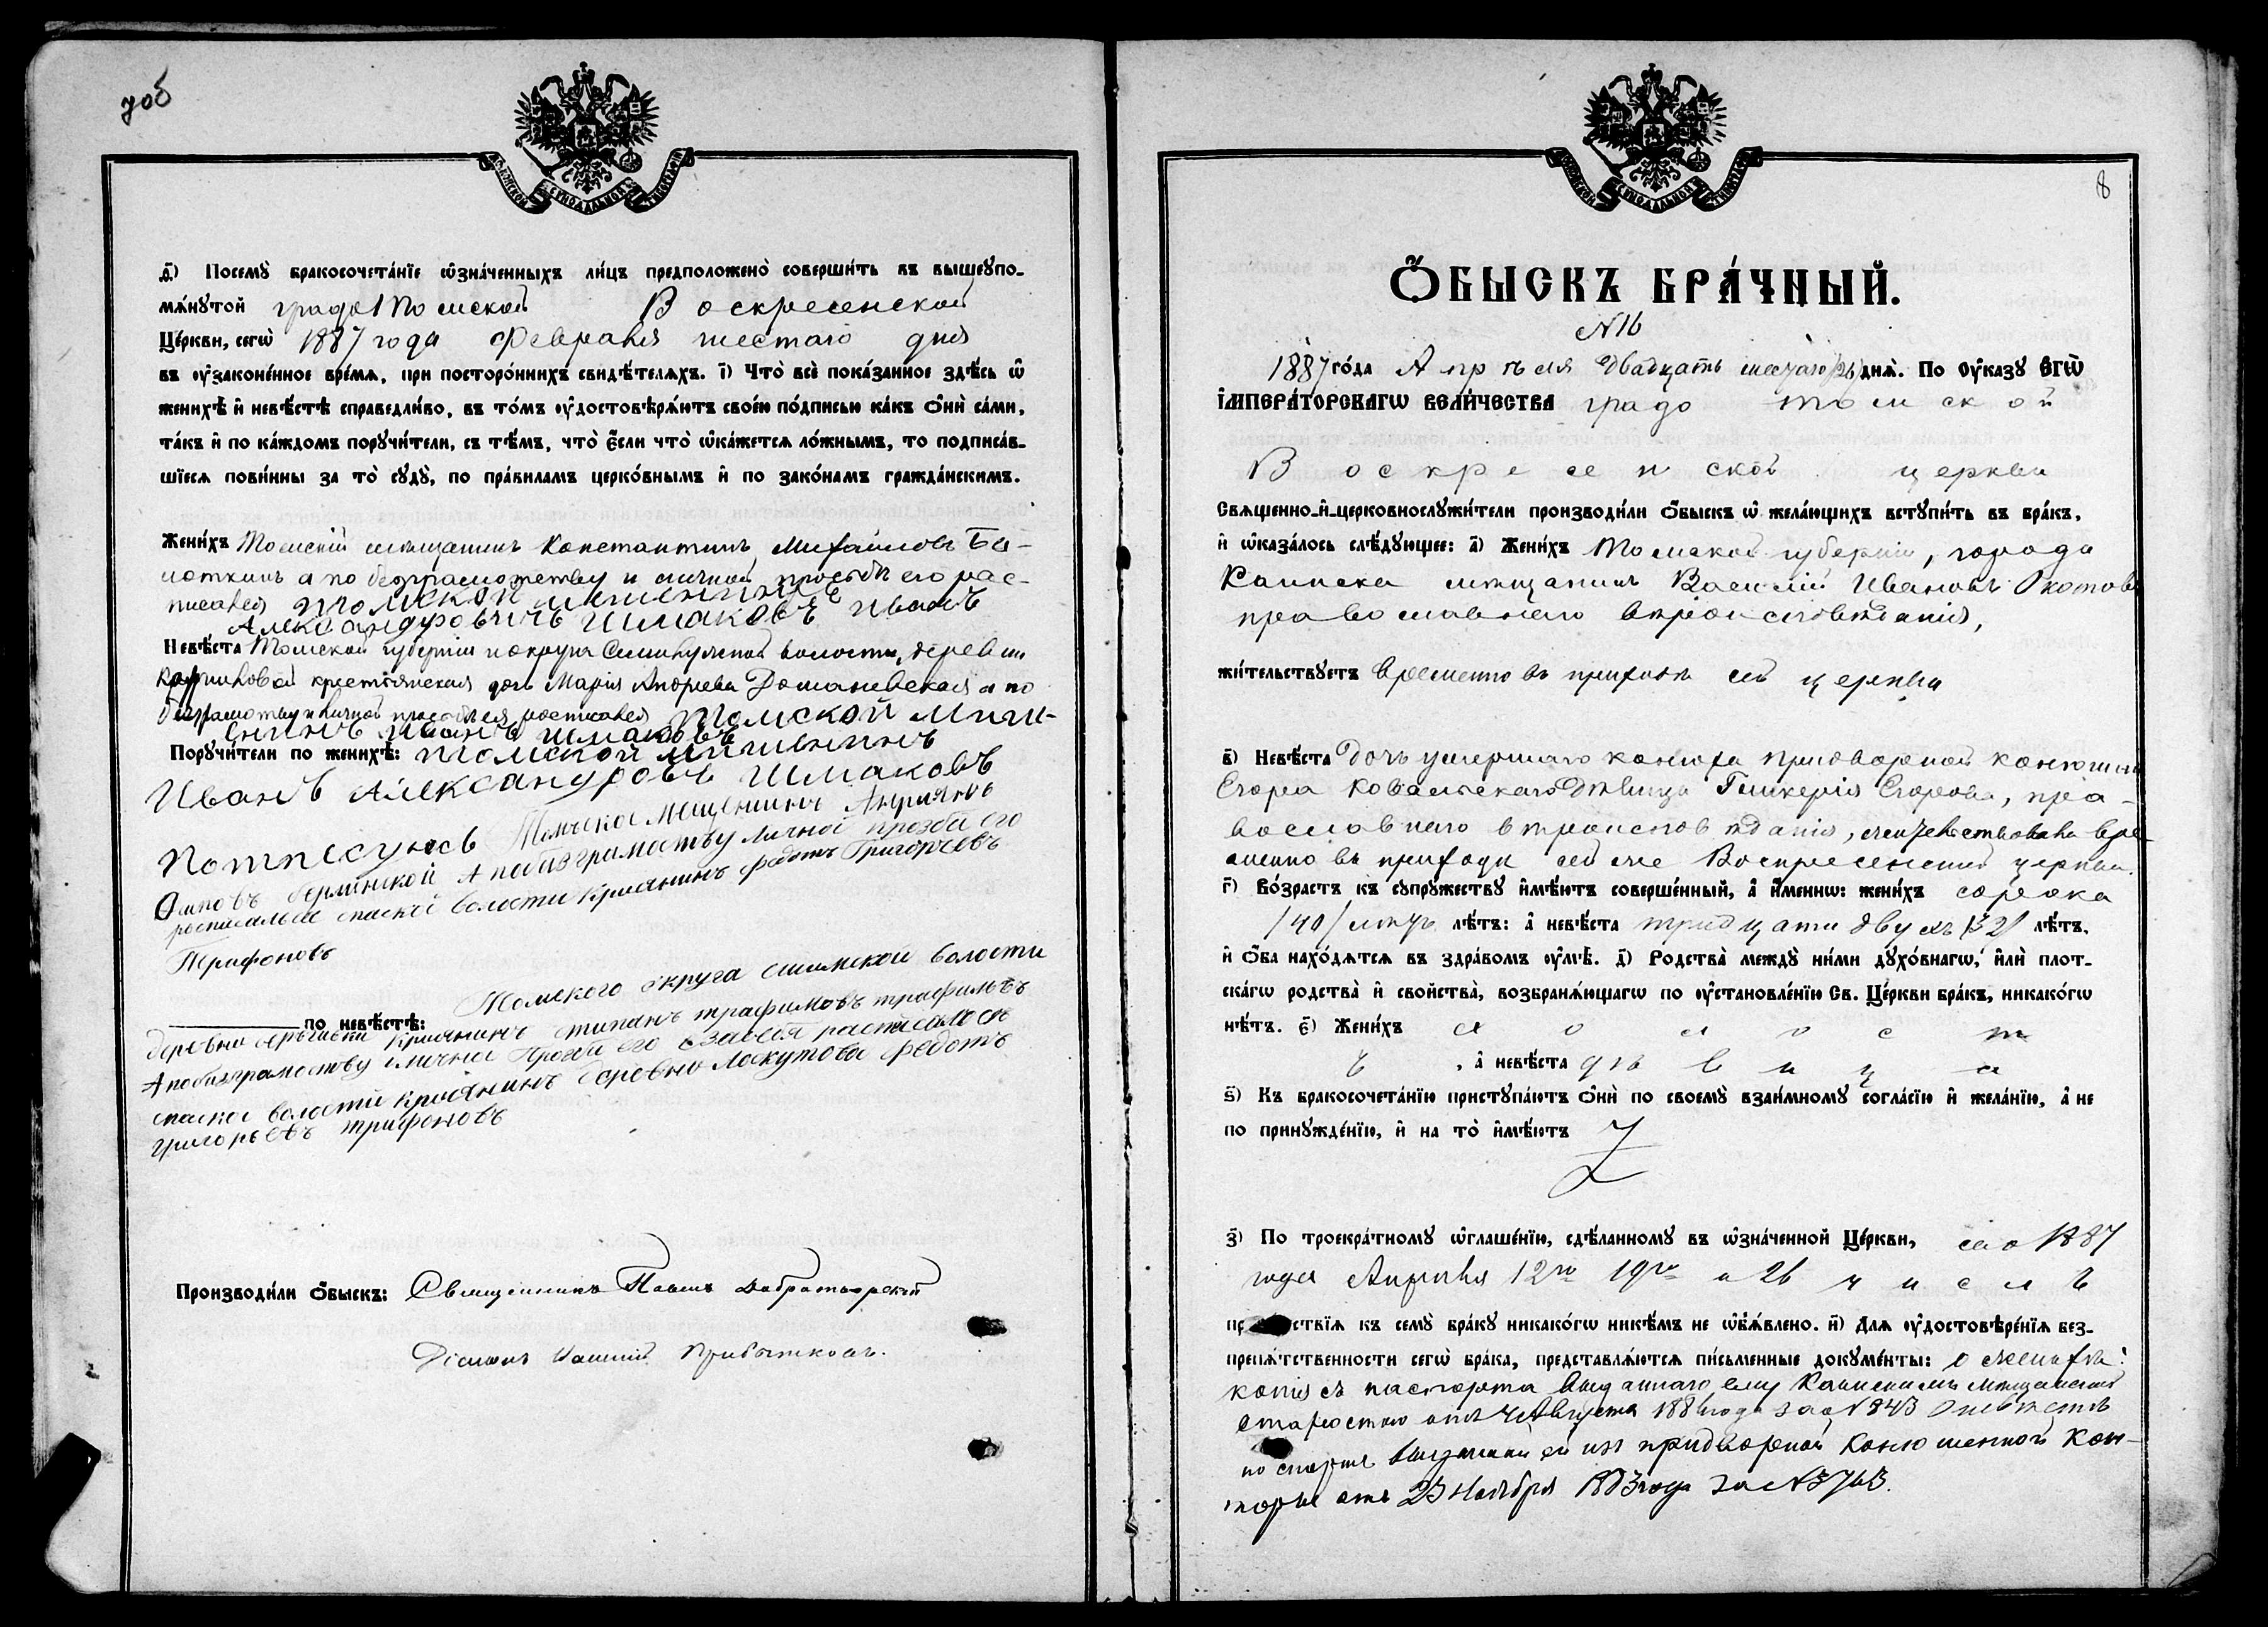 7об
СѴНОДАЛЬНОЙ
д҃) Посемꙋ̀ бракосочета́нїе ѡ҆зна́ченныхъ ли́цъ предположено̀ соверши́ть въ вышеꙋпо-
мѧ́нꙋтой градо Томской Воскресенской
Це́ркви, сегѡ̀ 1887 года Февраля шестаго дня
въ ᲂу҆законе́нное вре́мѧ, при посторо́ннихъ свидѣ́телѧхъ. і҃) Что̀ всѐ пока́занное здѣ́сь ѡ҆
женихѣ̀ и҆ невѣ́стѣ справедли́во, въ то́мъ ᲂу҆достовѣрѧ́ютъ свое́ю по́дписью ка́къ ѻ҆нѝ са́ми,
та́къ и҆ по ка́ждомъ порꙋчи́тели, съ тѣ́мъ, что̀ є҆́сли что̀ ѡ҆ка́жетсѧ ло́жнымъ, то подписа́в-
шїесѧ пови́нны за то̀ сꙋдꙋ̀, по пра́виламъ церко́внымъ и҆ по зако́намъ гражда́нскимъ.
Жени́хъ Томскій мѣщанинъ Константинъ Михайловъ Ба-
моткинъ а по безграмотству и личной просьбѣ его рас-
писался томской мешенинъ
Александровичъ Шмаковъ Иванъ
Невѣ́ста Томской губерніи и округа Семилужной волости, деревни
крестьянская дочь Марія Андреева Домашевская а по
безграмотству и личной просьбѣ ея росписался томской миш-
енинъ Иванъ Шмаковъ
Порꙋчи́тели по женихѣ̀: томской мишенинъ
Иванъ Александровъ Шмаковъ
Потписуюсь Томчкое Мещенинъ Андрияновъ
Осиповъ берлинской Апобизграмоству личной прозби его
росписалься спаской волости крисянинъ федотъ Григорьевъ
Трифоновъ
Томского округа волости
по невѣ́стѣ:
деревни крисянинъ стипанъ трафимовъ
Апобизграмоству личной прозби его засебя расписался
спаской волости крисянинъ деревни Лоскутова федотъ
григорьевъ трифоновъ
Производи́ли ѻ҆́быскъ: Священникъ Павелъ Добротворскій
Діаконъ Прибытковъ.
8
СѴНОДАЛЬНОЙ
Ѻ҆́БЫСКЪ БРА́ЧНЫЙ.
№ 16
1887 го́да Апрѣля двадцать шестаго /26/ днѧ̀. По ᲂу҆ка́зꙋ Є҆гѡ̀
І҆мпера́торскагѡ Вели́чества градо Томской
Воскресенской церкви
Свѧщенно-и҆-церковнослꙋжи́тели производи́ли ѻ҆́быскъ ѡ҆ жела́ющихъ встꙋпи́ть въ бра́къ,
и҆ ѡ҆каза́лось слѣ́дꙋющее: а҃) Жени́хъ Томской губерніи, города
Каинска мѣщанинъ Василій Ивановъ Окотовъ
православнаго вѣроисповѣданія,
жи́тельствꙋетъ временно въ приходѣ сей церкви
в҃) Невѣ́ста дочь умершаго конюха придворной конюшни
Егора Ковалевскаго дѣвица Гликерія Егорова, пра-
вославнаго вѣроисповѣданія, жительствовала вре-
менно въ приходѣ сей же Воскресенской церкви.
г҃) Во́зрастъ къ сꙋпрꙋ́жествꙋ и҆мѣ́ютъ соверше́нный, а҆ и҆́менню: жени́хъ сорока
/40/ лѣтъ лѣ́тъ: а҆ невѣ́ста тридцати двухъ /32/ лѣ́тъ,
и҆ ѻ҆́ба нахо́дѧтсѧ въ здра́вомъ ᲂу҆мѣ̀. д҃) Родства̀ междꙋ̀ ни́ми дꙋхо́внагѡ, и҆лѝ плот-
ска́гѡ родства̀ и҆ сво́йства̀, возбранѧ́ющагѡ по ᲂу҆становле́нїю Св. Це́ркви бра́къ, никако́гѡ
нѣ́тъ. є҃) Жени́хъ холост
ъ, а҆ невѣ́ста дѣвица
ѕ҃) Къ бракосочета́нїю пристꙋпа́ютъ ѻ҆нѝ по своемꙋ̀ взаи́мномꙋ согла́сїю и҆ жела́нїю, а҆ не
по принꙋжде́нїю, и҆ на то̀ и҆мѣ́ютъ
з҃) По троекра́тномꙋ ѡ҆глаше́нїю, сдѣ́ланномꙋ въ ѡ҆зна́ченной Це́ркви, сего 1887
года Апрѣля 12го 19го и 26 числъ
ствїѧ къ семꙋ̀ бра́кꙋ никако́гѡ никѣ́мъ не ѡ҆б̾ѧ́влено. и҃) Для ᲂу҆достовѣре́нїѧ без-
препѧ́тственности сегѡ̀ бра́ка, представлѧ́ютсѧ пи́сьменные докꙋме́нты: о женихѣ:
копія съ паспорта выданнаго ему Каинскимъ мѣщанскимъ
старостою отъ Августа за № 843 о невѣстѣ
паспортъ выданный ей изъ придворной конюшенной кон-
торы отъ 25 Ноября 1883 года за № 3763.